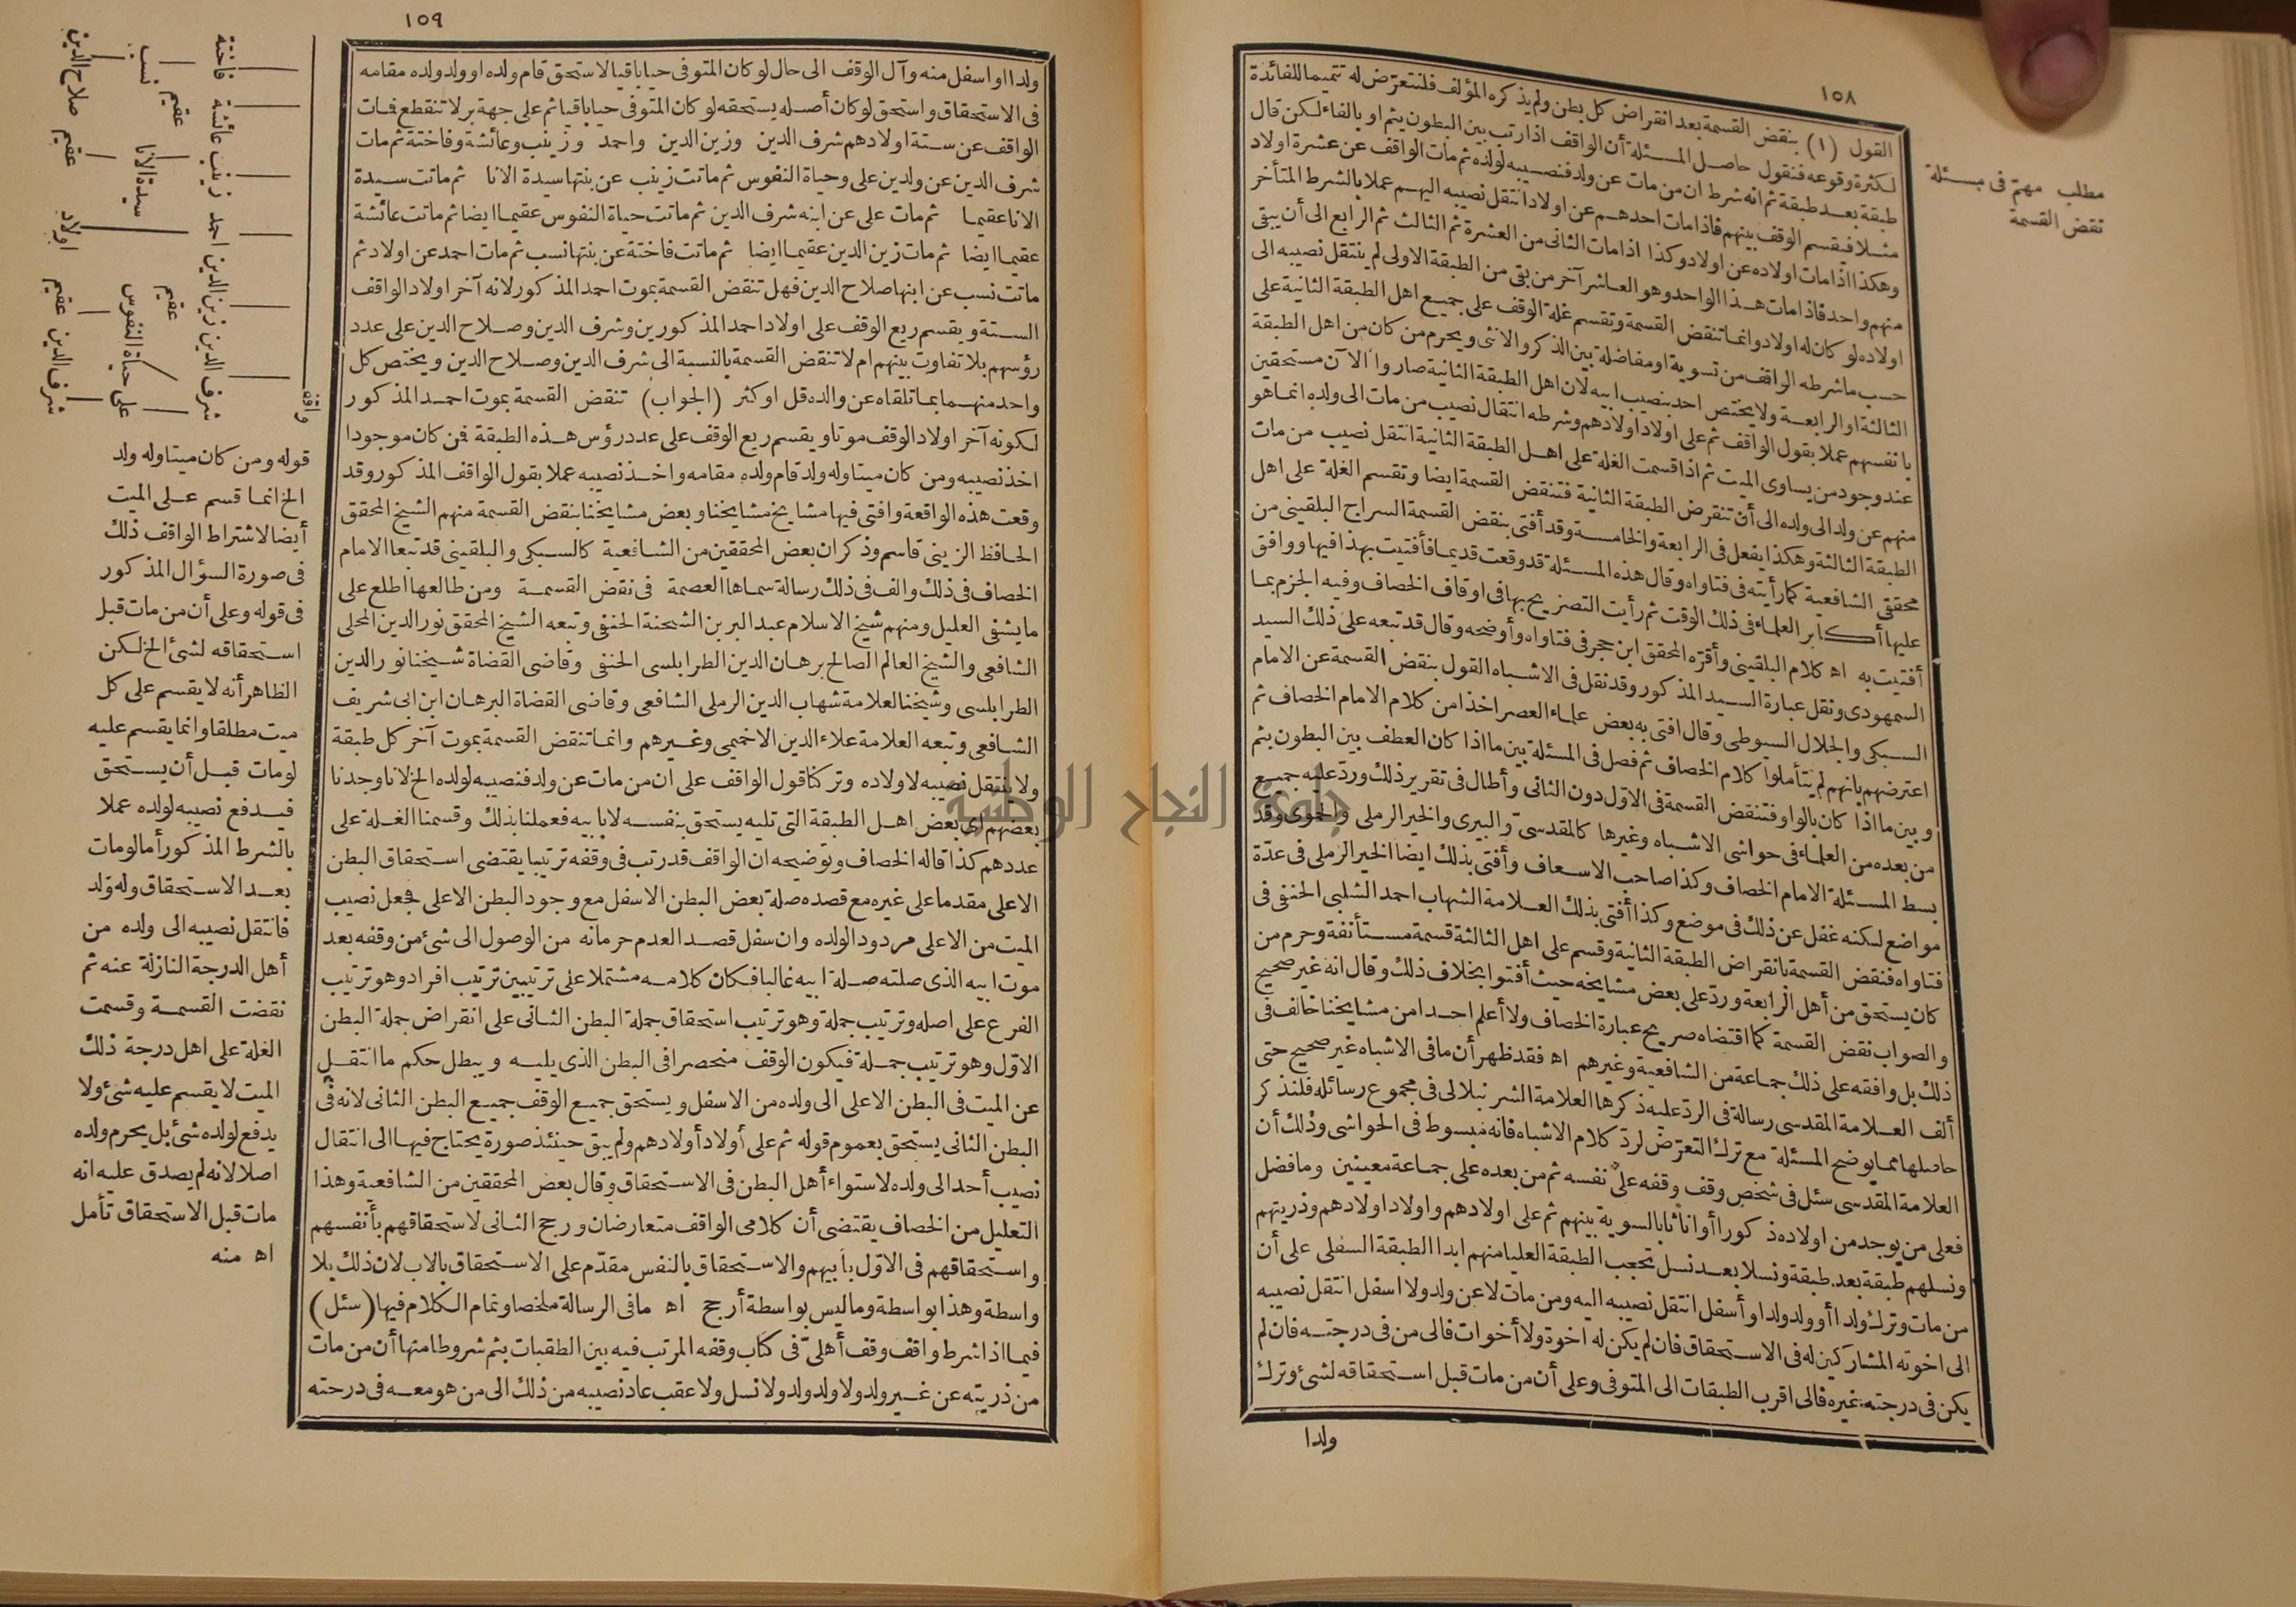 ١٥٨
القول (١) بنقض القسمة بعد انقراض كل بطن ولم يذكره المؤلف فلنتعرّض له تتميما للفائدة
لكثرة وقوعه فنقول حاصل المسئلة أن الواقف اذا رتب بين البطون بثم او بالفاء لكن قال
طبقة بعد طبقة ثم انه شرط ان من مات عن ولد فنصيبه لولده ثم مات الواقف عن عشرة اولاد
مثلا فيقسم الوقف بينهم فاذا مات احدهم عن اولاد انتقل نصيبه اليهم عملا بالشرط المتأخر
وهكذا اذا مات اولاده عن اولاد وكذا اذا مات الثانى من العشرة ثم الثالث ثم الرابع الى أن يبقى
منهم واحد فاذا مات هذا الواحد وهو العاشر آخر من بقى من الطبقة الاولى لم ينتقل نصيبه الى
اولاده لو كان له اولاد وانما تنقض القسمة وتقسم غلة الوقف على جميع اهل الطبقة الثانية على
حسب ما شرطه الواقف من تسوية او مفاضلة بين الذكر والانثى ويحرم من كان من اهل الطبقة
الثالثة او الرابعة ولا يختص احد بنصيب ابيه لان اهل الطبقة الثانية صاروا الآن مستحقين
بانفسهم عملا بقول الواقف ثم على اولاد اولادهم وشرطه انتقال نصيب من مات الى ولده انما هو
عند وجود من يساوى الميت ثم اذا قسمت الغلة على اهل الطبقة الثانية انتقل نصيب من مات
منهم عن ولد الى ولده الى أن تنقرض الطبقة الثانية فتنقض القسمة ايضا وتقسم الغلة على اهل
الطبقة الثالثة وهكذا يفعل فى الرابعة والخامسة وقد أفتى بنقض القسمة السراج البلقينى من
محققى الشافعية كما رأيته فى فتاواه وقال هذه المسئلة قد وقعت قديما فأفتيت بهذا فيها ووافق
عليها أكابر العلماء فى ذلك الوقت ثم رأيت التصريح بها فى اوقاف الخصاف وفيه الجزم بما
أفتيت به اه كلام البلقينى وأقرّه المحقق ابن حجر فى فتاواه وأوضحه وقال قد تبعه على ذلك السيد
السمهودى ونقل عبارة السيد المذكور وقد نقل فى الاشباه القول بنقض القسمة عن الامام
السبكى والجلال السيوطى وقال افتى به بعض علماء العصر اخذا من كلام الامام الخصاف ثم
اعترضهم بانهم لم يتأملوا كلام الخصاف ثم فصل فى المسئلة بين ما اذا كان العطف بين البطون بثم
وبين ما اذا كان بالواو فتنقض القسمة فى الاوّل دون الثانى وأطال فى تقرير ذلك وردّ عليه جميع
من بعده من العلماء فى حواشى الاشباه وغيرها كالمقدسىّ والبيرى والخير الرملى والحموى وقد
بسط المسئلة الامام الخصاف وكذا صاحب الاسعاف وأفتى بذلك ايضا الخير الرملى فى عدّة
مواضع لكنه غفل عن ذلك فى موضع وكذا أفتى بذلك العلامة الشهاب احمد الشلبى الحنفى فى
فتاواه فنقض القسمة بانقراض الطبقة الثانية وقسم على اهل الثالثة قسمة مستأنفة وحرم من
كان يستحق من أهل الرابعة وردّ على بعض مشايخه حيث أفتوا بخلاف ذلك وقال انه غير صحيح
والصواب نقض القسمة كما اقتضاه صريح عبارة الخصاف ولا أعلم احدا من مشايخنا خالف فى
ذلك بل وافقه على ذلك جماعة من الشافعية وغيرهم اه فقد ظهر أن ما فى الاشباه غير صحيح حتى
ألف العلامة المقدسى رسالة فى الردّ عليه ذكرها العلامة الشرنبلالى فى مجموع رسائله فلنذكر
حاصلها مما يوضح المسئلة مع ترك التعرّض لردّ كلام الاشباه فانه مبسوط فى الحواشى وذلك أن
العلامة المقدسى سئل فى شخص وقف وقفه على نفسه ثم من بعده على جماعة معينين وما فضل
فعلى من يوجد من اولاده ذكورا أو اناثا بالسوية بينهم ثم على اولادهم واولاد اولادهم وذريتهم
ونسلهم طبقة بعد طبقة ونسلا بعد نسل تحجب الطبقة العليا منهم ابدا الطبقة السفلى على أن
من مات وترك ولدا أو ولد ولد او أسفل انتقل نصيبه اليه ومن مات لا عن ولد ولا اسفل انتقل نصيبه
الى اخوته المشاركين له فى الاستحقاق فان لم يكن له اخوة ولا أخوات فالى من فى درجته فان لم
يكن فى درجته غيره فالى اقرب الطبقات الى المتوفى وعلى أن من مات قبل استحقاقه لشئ وترك
ولدا
مطلب مهمّ فى مسئلة
نقض القسمة
١٥٩
ولدا او اسفل منه وآل الوقف الى حال لو كان المتوفى حيا باقيا لاستحق قام ولده او ولد ولده مقامه
فى الاستحقاق واستحق لو كان أصله يستحقه لو كان المتوفى حيا باقيا ثم على جهة بر لا تنقطع فمات
الواقف عن ستة اولاد هم شرف الدين وزين الدين واحمد وزينب وعائشة وفاختة ثم مات
شرف الدين عن ولدين على وحياة النفوس ثم ماتت زينب عن بنتها سيدة الانا ثم ماتت سيدة
الانا عقيما ثم مات على عن ابنه شرف الدين ثم ماتت حياة النفوس عقيما ايضا ثم ماتت عائشة
عقيما ايضا ثم مات زين الدين عقيما ايضا ثم ماتت فاختة عن بنتها نسب ثم مات احمد عن اولاد ثم
ماتت نسب عن ابنها صلاح الدين فهل تنقض القسمة بموت احمد المذكور لانه آخر اولاد الواقف
الستة ويقسم ريع الوقف على اولاد احمد المذكورين وشرف الدين وصلاح الدين على عدد
رؤسهم بلا تفاوت بينهم ام لا تنقض القسمة بالنسبة الى شرف الدين وصلاح الدين ويختص كل
واحد منهما بما تلقاه عن والده قل او كثر (الجواب) تنقض القسمة بموت احمد المذكور
لكونه آخر اولاد الوقف موتا ويقسم ريع الوقف على عدد رؤس هذه الطبقة فمن كان موجودا
اخذ نصيبه ومن كان ميتا وله ولد قام ولده مقامه واخذ نصيبه عملا بقول الواقف المذكور وقد
وقعت هذه الواقعة وافتى فيها مشايخ مشايخنا وبعض مشايخنا بنقض القسمة منهم الشيخ المحقق
الحافظ الزينى قاسم وذكر ان بعض المحققين من الشافعية كالسبكى والبلقينى قد تبعا الامام
الخصاف فى ذلك والف فى ذلك رسالة سماها العصمة فى نقض القسمة ومن طالعها اطلع على
ما يشفى العليل ومنهم شيخ الاسلام عبد البر بن الشحنة الحنفى وتبعه الشيخ المحقق نور الدين المحلى
الشافعى والشيخ العالم الصالح برهان الدين الطرابلسى الحنفى وقاضى القضاة شيخنا نور الدين
الطرابلسى وشيخنا العلامة شهاب الدين الرملى الشافعى وقاضى القضاة البرهان ابن ابى شريف
الشافعى وتبعه العلامة علاء الدين الاخميمى وغيرهم وانما تنقض القسمة بموت آخر كل طبقة
ولا ينتقل نصيبه لاولاده وتركنا قول الواقف على ان من مات عن ولد فنصيبه لولده الخ لانا وجدنا
بعضهم اى بعض اهل الطبقة التى تليه يستحق بنفسه لا بابيه فعملنا بذلك وقسمنا الغلة على
عددهم كذا قاله الخصاف وتوضيحه ان الواقف قد رتب فى وقفه ترتيبا يقتضى استحقاق البطن
الاعلى مقدما على غيره مع قصده صلة بعض البطن الاسفل مع وجود البطن الاعلى فجعل نصيب
الميت من الاعلى مردود الولده وان سفل قصد العدم حرمانه من الوصول الى شئ من وقفه بعد
موت ابيه الذى صلته صلة ابيه غالبا فكان كلامه مشتملا على ترتيبين ترتيب افراد وهو ترتيب
الفرع على اصله وترتيب جملة وهو ترتيب استحقاق جملة البطن الثانى على انقراض جملة البطن
الاوّل وهو ترتيب جملة فيكون الوقف منحصرا فى البطن الذى يليه ويبطل حكم ما انتقل
عن الميت فى البطن الاعلى الى ولده من الاسفل ويستحق جميع الوقف جميع البطن الثانى لانه فى
البطن الثانى يستحق بعموم قوله ثم على أولاد أولادهم ولم يبق حينئذ صورة يحتاج فيها الى انتقال
نصيب أحد الى ولده لاستواء أهل البطن فى الاستحقاق وقال بعض المحققين من الشافعية وهذا
التعليل من الخصاف يقتضى أن كلامى الواقف متعارضان ورجح الثانى لاستحقاقهم بأنفسهم
واستحقاقهم فى الاوّل بأبيهم والاستحقاق بالنفس مقدّم على الاستحقاق بالاب لان ذلك بلا
واسطة وهذا بواسطة وما ليس بواسطة أرجح اه ما فى الرسالة ملخصا وتمام الكلام فيها (سئل)
فيما اذا شرط واقف وقف أهلىّ فى كتاب وقفه المرتب فيه بين الطقبات بثم شروطا منها أن من مات
من ذريته عن غير ولد ولا ولد ولد ولا نسل ولا عقب عاد نصيبه من ذلك الى من هو معه فى درجته
واقف
شرف الدين زين الدين احمد زينب عائشة فاختة
عقيم عقيم
على حياة النفوس اولاد سيدة الانا نسب
شرف الدين عقيم عقيم صلاح الدين
قوله ومن كان ميتا وله ولد
الخ انما قسم على الميت
أيضا لاشتراط الواقف ذلك
فى صورة السؤال المذكور
فى قوله وعلى أن من مات قبل
استحقاقه لشئ الخ لكن
الظاهر أنه لا يقسم على كل
ميت مطلقا وانما يقسم عليه
لو مات قبل أن يستحق
فيدفع نصيبه لولده عملا
بالشرط المذكور أما لو مات
بعد الاستحقاق وله ولد
فانتقل نصيبه الى ولده من
أهل الدرجة النازلة عنه ثم
نقضت القسمة وقسمت
الغلة على اهل درجة ذلك
الميت لا يقسم عليه شئ ولا
يدفع لولده شئ بل يحرم ولده
اصلا لانه لم يصدق عليه انه
مات قبل الاستحقاق تأمل
اه منه
النجاح الوطنية